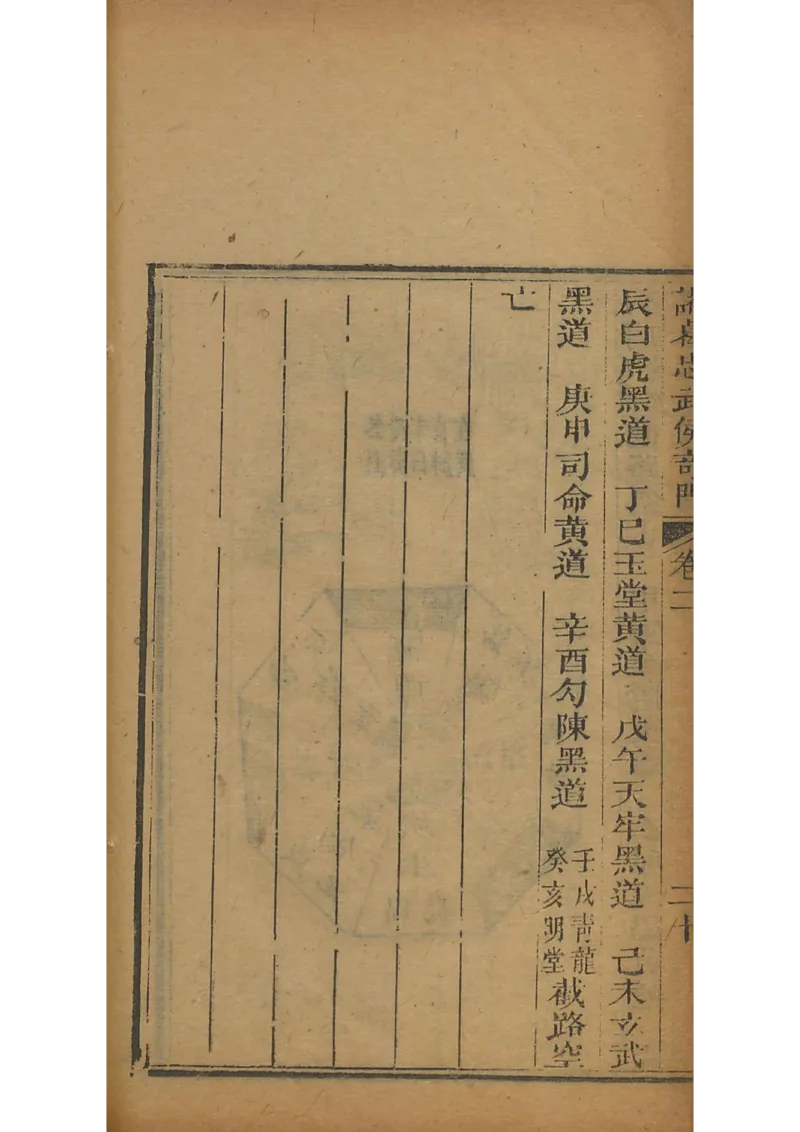 諸葛忠武侯奇門 卷二 二十
辰白虎黑道 丁巳玉堂黄道 戊午天牢黑道 己未玄武
黑道 庚申司命黄道 辛酉勾陳黑道 壬戌青龍 癸亥明堂 截路空
亡